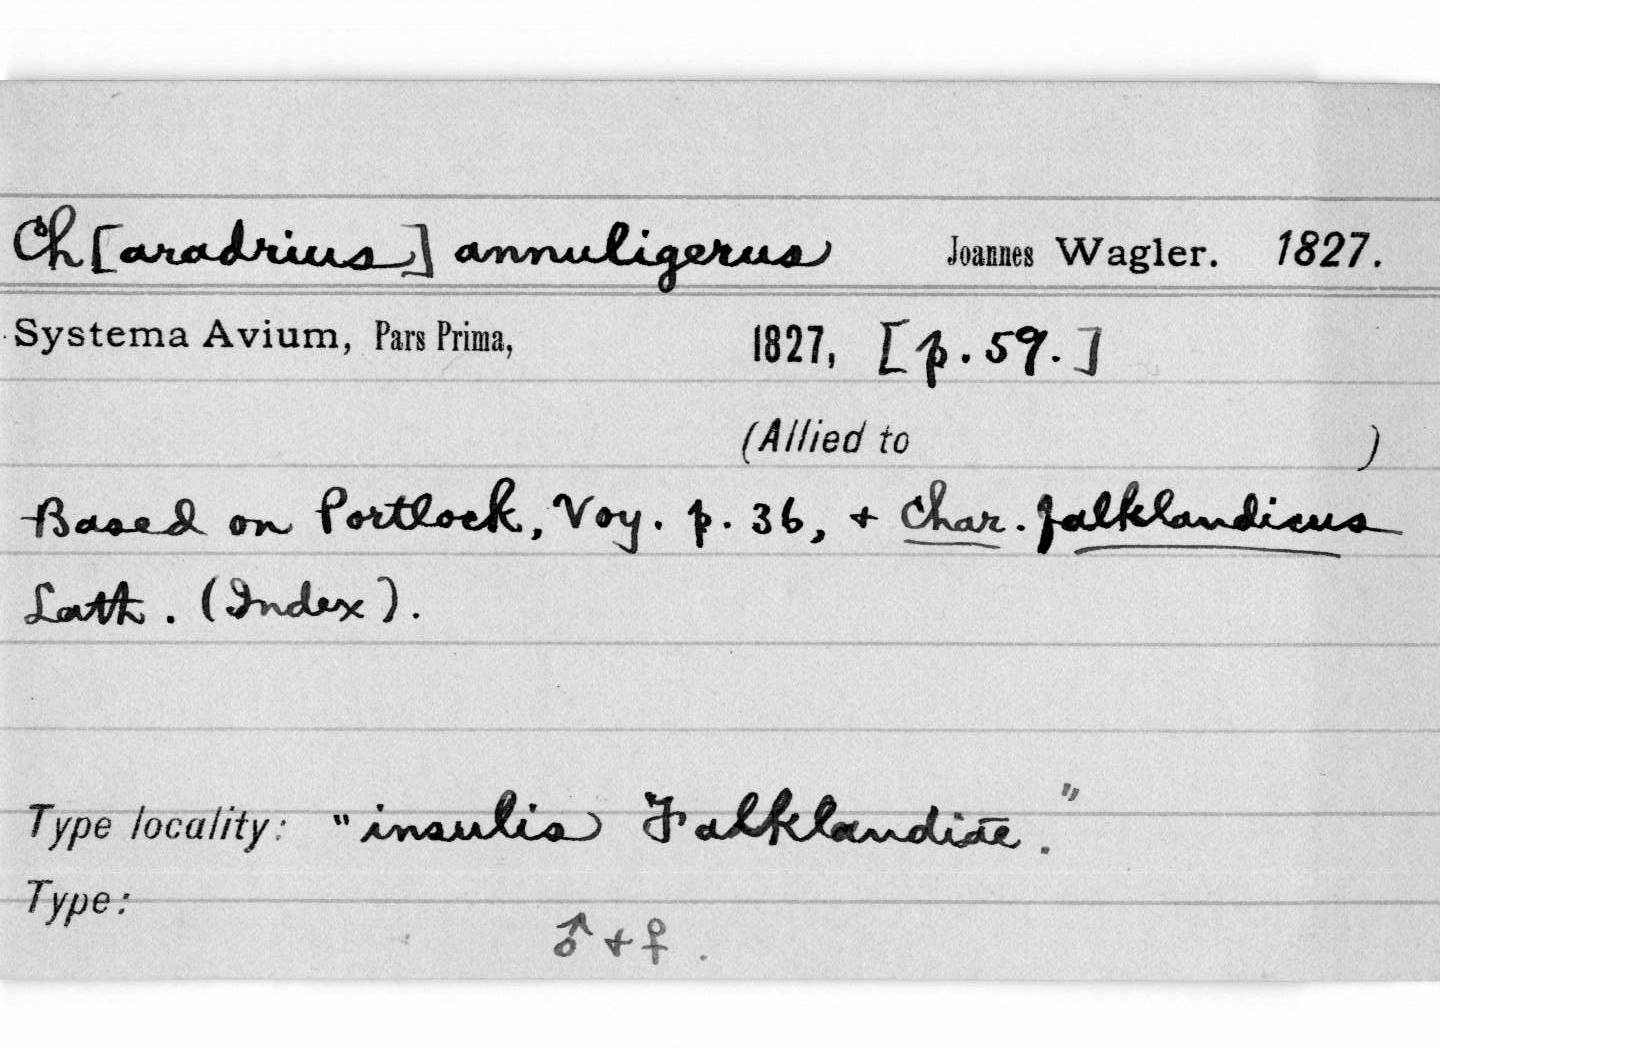 Ch[aradrius] annuligerus Joannes Wagler. 1827.
Systema Avium, Pars Prima, 1827, [p.59.]
(Allied to )
Based on Portlock, Voy. p. 36, + Char. falklandicus
Lath. (Index).
Type locality: "insulis Falklandiae."
Type:
♂ + ♀.